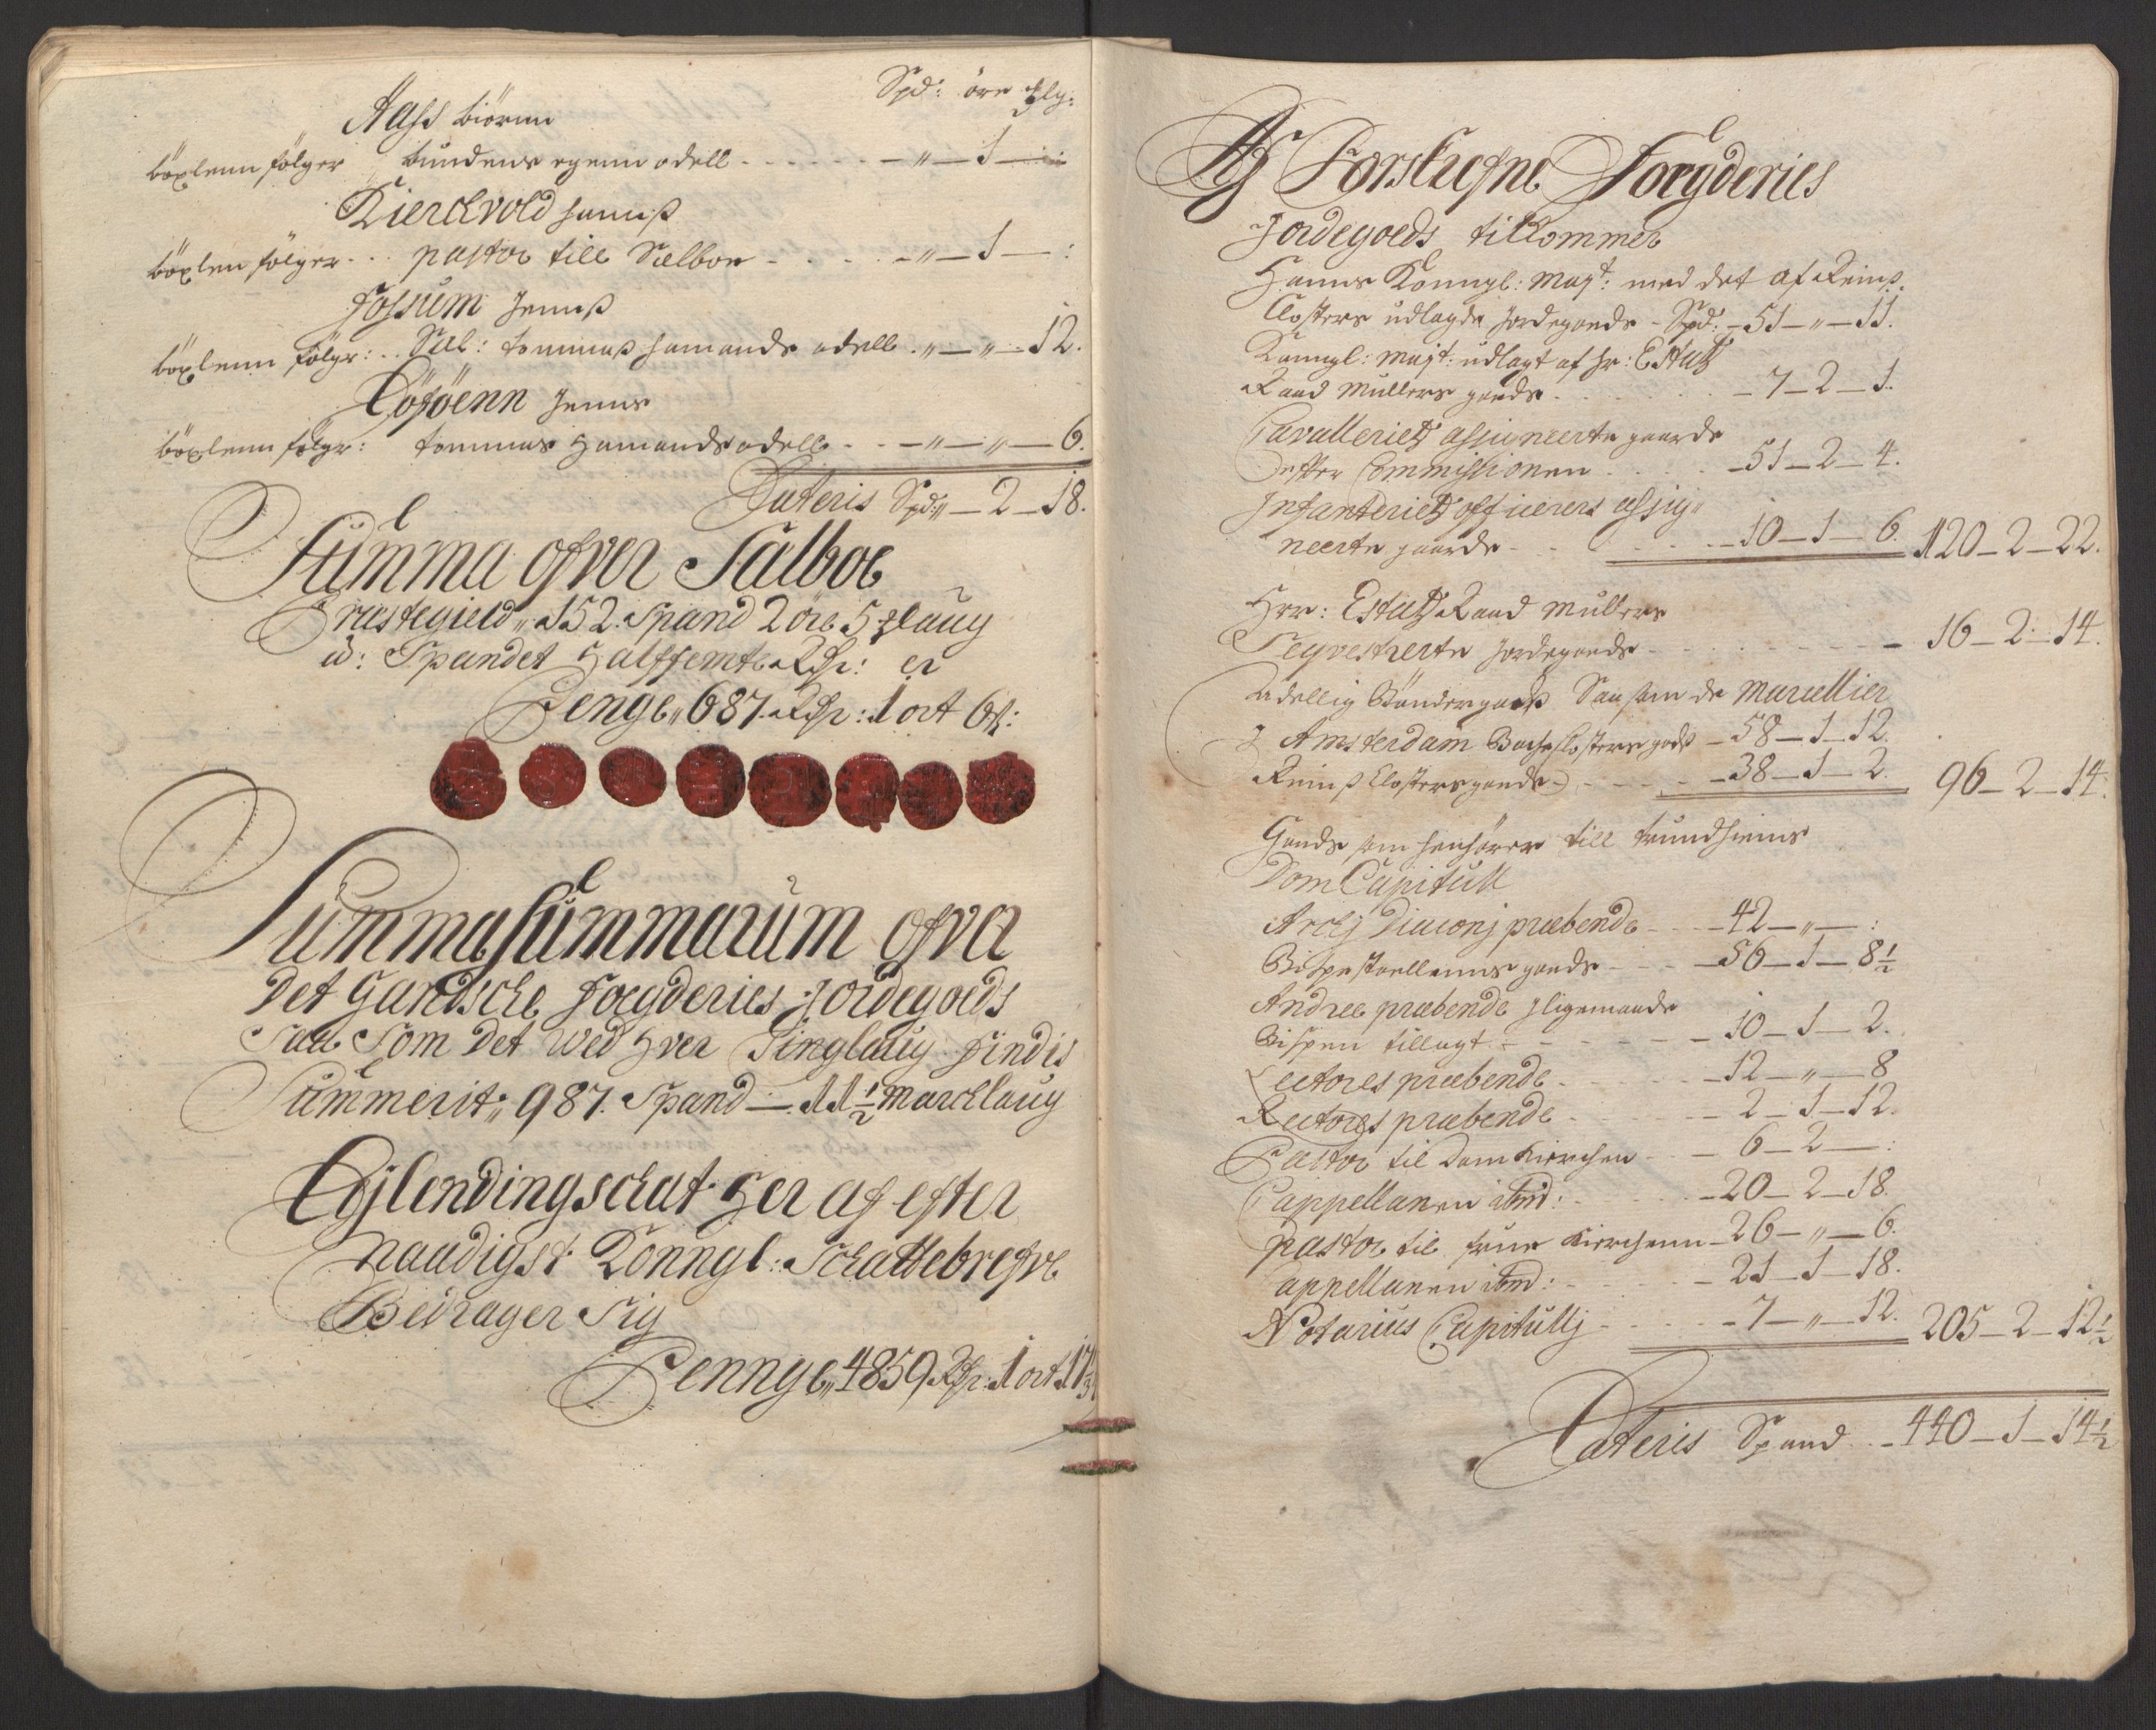 Spd: öre Mlg:
Aass Biörnn
böxlenn fölger bundens egenn odell - „ - 1 -
Kierchvold Jenniß
böxlen fölger pastor till Sælboe - „ - 1 - :
Fossum Jenniß
böxlenn fölgr: Sæl: tommaß hamands odell „ - „ - 12.
Jenns
böxlenn fölgr: tommas Hamands odell - „ - „ - 6.
Lateris Spd: „ - 2 - 18.
Summa ofver Sælboe
Præstegield „ 152. Spand 2 öre 5 Mlaug
à: Spandet Halffemte Rdr: er
Penge „ 687 Rdr: 1 ort 6 s:
Summa Summarum ofver
Det Gandsche Fogderies Jordegoeds
Saa Som Det Wed Hver Tinglaug Findis
Summerit „ 987. Spand - 11½ Marchlaug
Lejlendingschat Her af efter
Naadigst Konngl: Schattebrefve
Bedrager Sig
Pennge „ 4859 Rdr: 1 ort
Af Forskrefne Fogderies
Jordegoeds tilkommer
Hanns Konngl: Mayt: med det af Reins
Closters udlagde Jordegoeds - Spd: - 51 - „ - 11.
Konngl: Mayt: udlagt af Hr: Estatz
Raad Mullers goeds - 7 - 2 - 1.
Cavalleriets assigneerte gaarde
efter Commissionen - 51 - 2 - 4.
Infanteriets officerers assig-
neerte gaarde - 10 - 1 - 6. 120 - 2 - 22.
Herr: Estatz Raad Mullers
Seqvestrerte Jordegoeds - 16 - 2 - 14.
Adellig Böndergods Saasom de Marcellier
J Amsterdam Bache Closters gods - 58 - 1 - 12.
Reinß Closters goeds - 38 - 1 - 2. 96 - 2 - 14.
Goeds som henhörer till trundhiems
Dom Capitull
Archj Diaconj præbende - 42 - „ - :
Bispestoellenns goeds - 56 - 1 - 8½
Andree præbende
Bispen tillagt - 10 - 1 - 2.
Lectores præbende - 12 - „ - 8
Rectores præbende - 2 - 1 - 12.
Pastor til Dom Kierchen - 6 - 2 - :
Cappellanen ibid: - 20 - 2 - 18
Pastor til frue Kierchenn - 26 - „ - 6.
Cappellanen ibid: - 21 - 1 - 18.
Notarius Capitullj - 7 - „ - 12. 205 - 2 - 12½
Lateris Spand - 440 - 1 - 14½